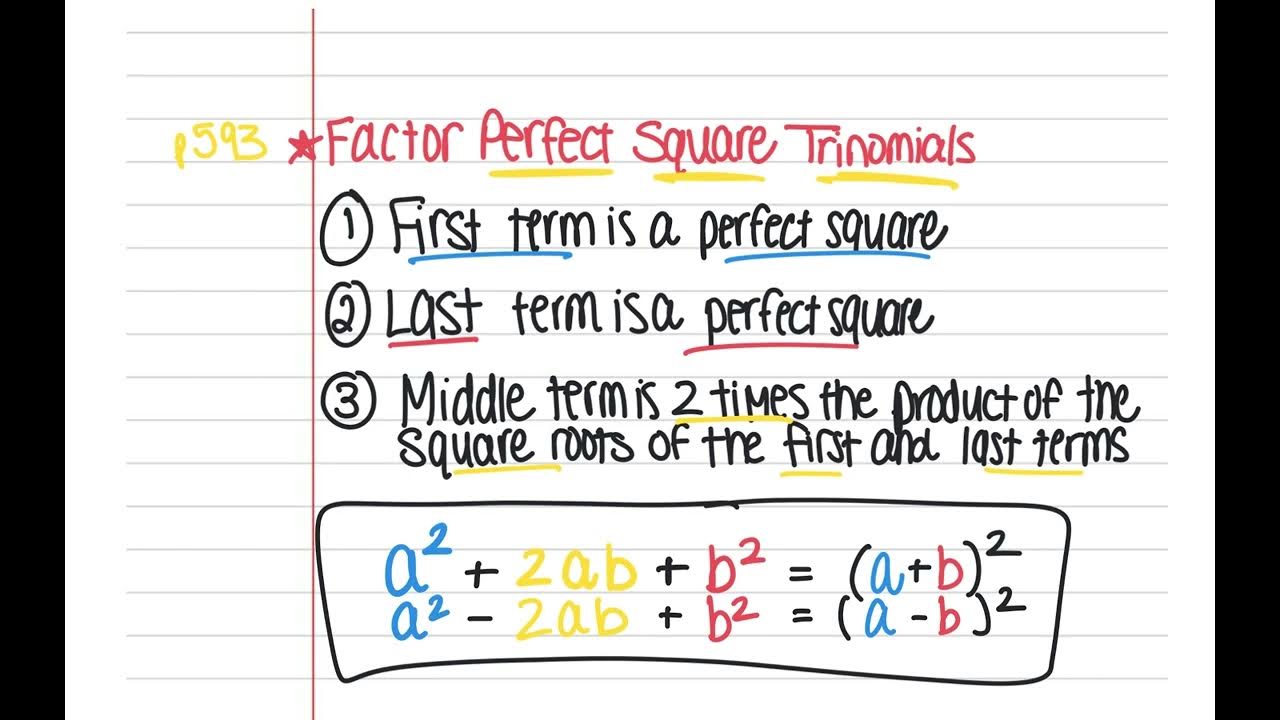 p593 ★Factor Perfect Square Trinomials
① First term is a perfect square
② Last term is a perfect square
③ Middle term is 2 times the product of the
square roots of the first and last terms
a² + 2ab + b² = (a+b)²
a² - 2ab + b² = (a-b)²